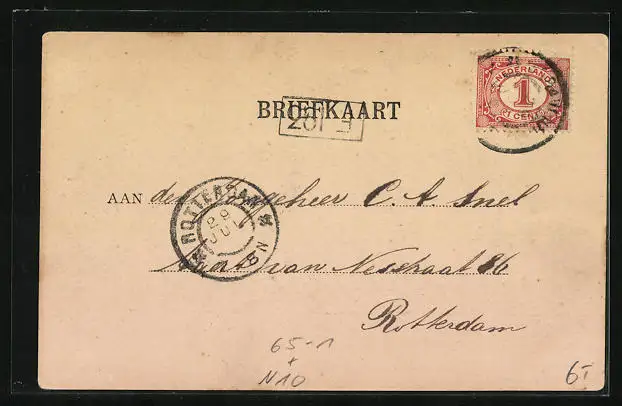 NEDERLAND
1
CENT
BRIEFKAART
AAN den C. A. Snel
van Nesstraat 86
Rotterdam
ROTTERDAM
29
JUL
65-1
+
N10
6I